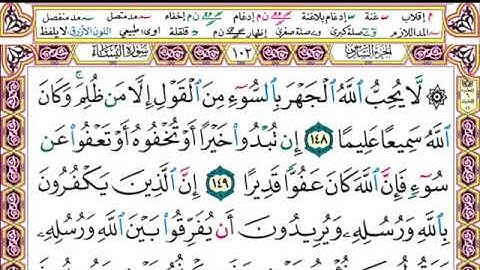 إقلاب غنة إدغام بلاغنة ن م إدغام ن م إخفاء مد متصل مد منفصل
المد اللازم صلة كبرى صلة صغرى إظهار ن م قلقلة اوى: طبيعي اللون الأزرق: لا يلفظ
سورة النساء ١٠٢ الجزء السادس
لَّا يُحِبُّ ٱللَّهُ ٱلْجَهْرَ بِٱلسُّوٓءِ مِنَ ٱلْقَوْلِ إِلَّا مَن ظُلِمَ ۚ وَكَانَ
ٱللَّهُ سَمِيعًا عَلِيمًا ١٤٨ إِن تُبْدُوا۟ خَيْرًا أَوْ تُخْفُوهُ أَوْ تَعْفُوا۟ عَن
سُوٓءٍ فَإِنَّ ٱللَّهَ كَانَ عَفُوًّا قَدِيرًا ١٤٩ إِنَّ ٱلَّذِينَ يَكْفُرُونَ
بِٱللَّهِ وَرُسُلِهِۦ وَيُرِيدُونَ أَن يُفَرِّقُوا۟ بَيْنَ ٱللَّهِ وَرُسُلِهِۦ